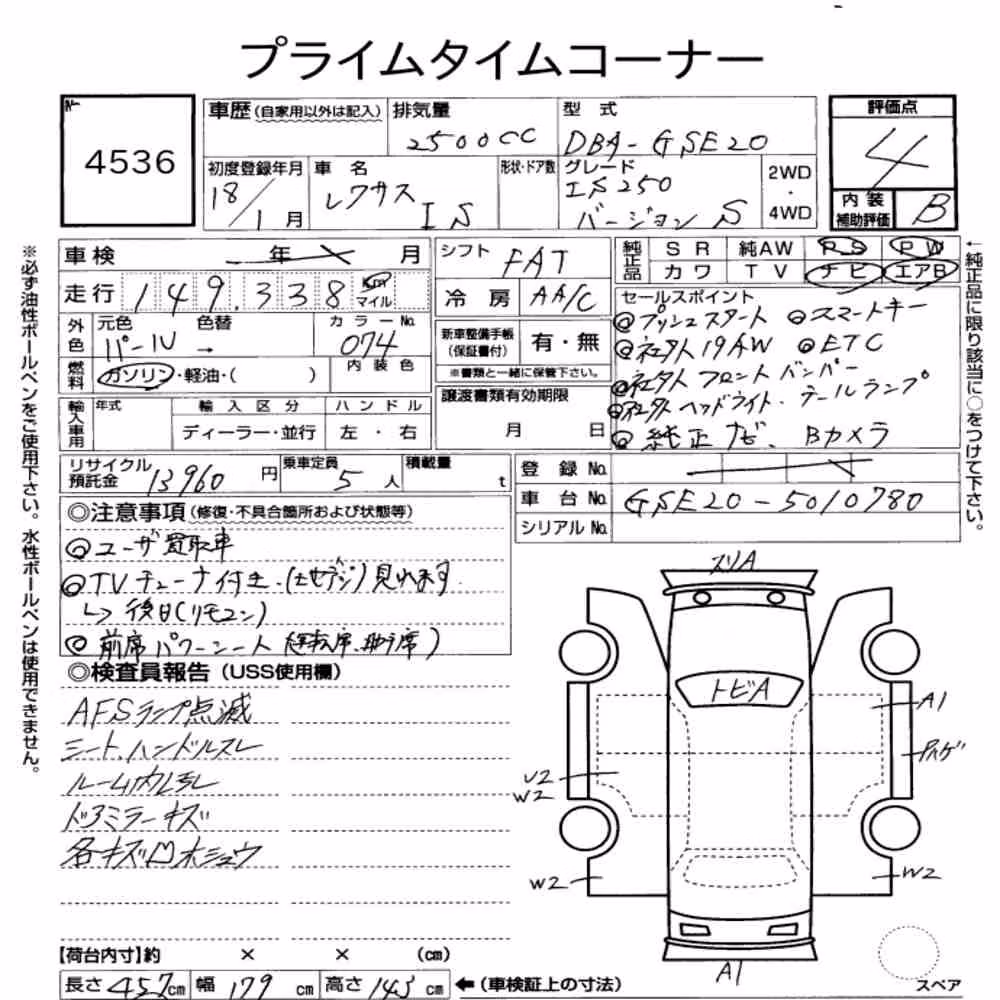 プライムタイムコーナー
No.
4536
車歴 (自家用以外は記入)
排気量
2500CC
型 式
DBA-GSE20
評価点
4
初度登録年月
18/1月
車 名
レクサス IS
形状・ドア数
グレード
IS250
バージョン S
2WD
・
4WD
内 装
補助評価
B
車検 年 月
シフト
FAT
純正品
SR 純AW PS PW
カワ TV ナビ エアB
走行 149.338 Km マイル
冷 房 AA/C
セールスポイント
◎プッシュスタート ◎スマートキー
◎社外19AW ◎ETC
◎社外フロントバンパー
◎社外ヘッドライト・テールランプ
◎純正ナビ、Bカメラ
外色
元色 色替
パール →
カラーNo.
074
新車整備手帳
(保証書付)
有・無
※書類と一緒に保管下さい。
燃料
ガソリン・軽油・( )
内 装 色
譲渡書類有効期限
月 日
輸入車用
年式
輸 入 区 分
ハ ン ド ル
ディーラー・並行
左 ・ 右
リサイクル
預託金
13960 円
乗車定員
5 人
積載量
t
登 録 No.
車 台 No. GSE20-5010780
シリアル No.
◎注意事項 (修復・不具合箇所および状態等)
◎ユーザ買取車
◎TVチューナ付き.(地デジ)見れます.
↳後日(リモコン)
◎前席パワーシート(運転席、助手席)
◎検査員報告 (USS使用欄)
AFSランプ点滅
シート、ハンドルスレ
ルーム内汚レ
ドアミラーキズ
各キズ凹木ショウ
スリA
トビA
A1
Pハゲ
U2
W2
W2
W2
A1
スペア
【荷台内寸】約 × × (cm)
長さ 457cm 幅 179 cm 高さ 143 cm ←(車検証上の寸法)
※必ず油性ボールペンをご使用下さい。水性ボールペンは使用できません。
←純正品に限り該当に○をつけて下さい。